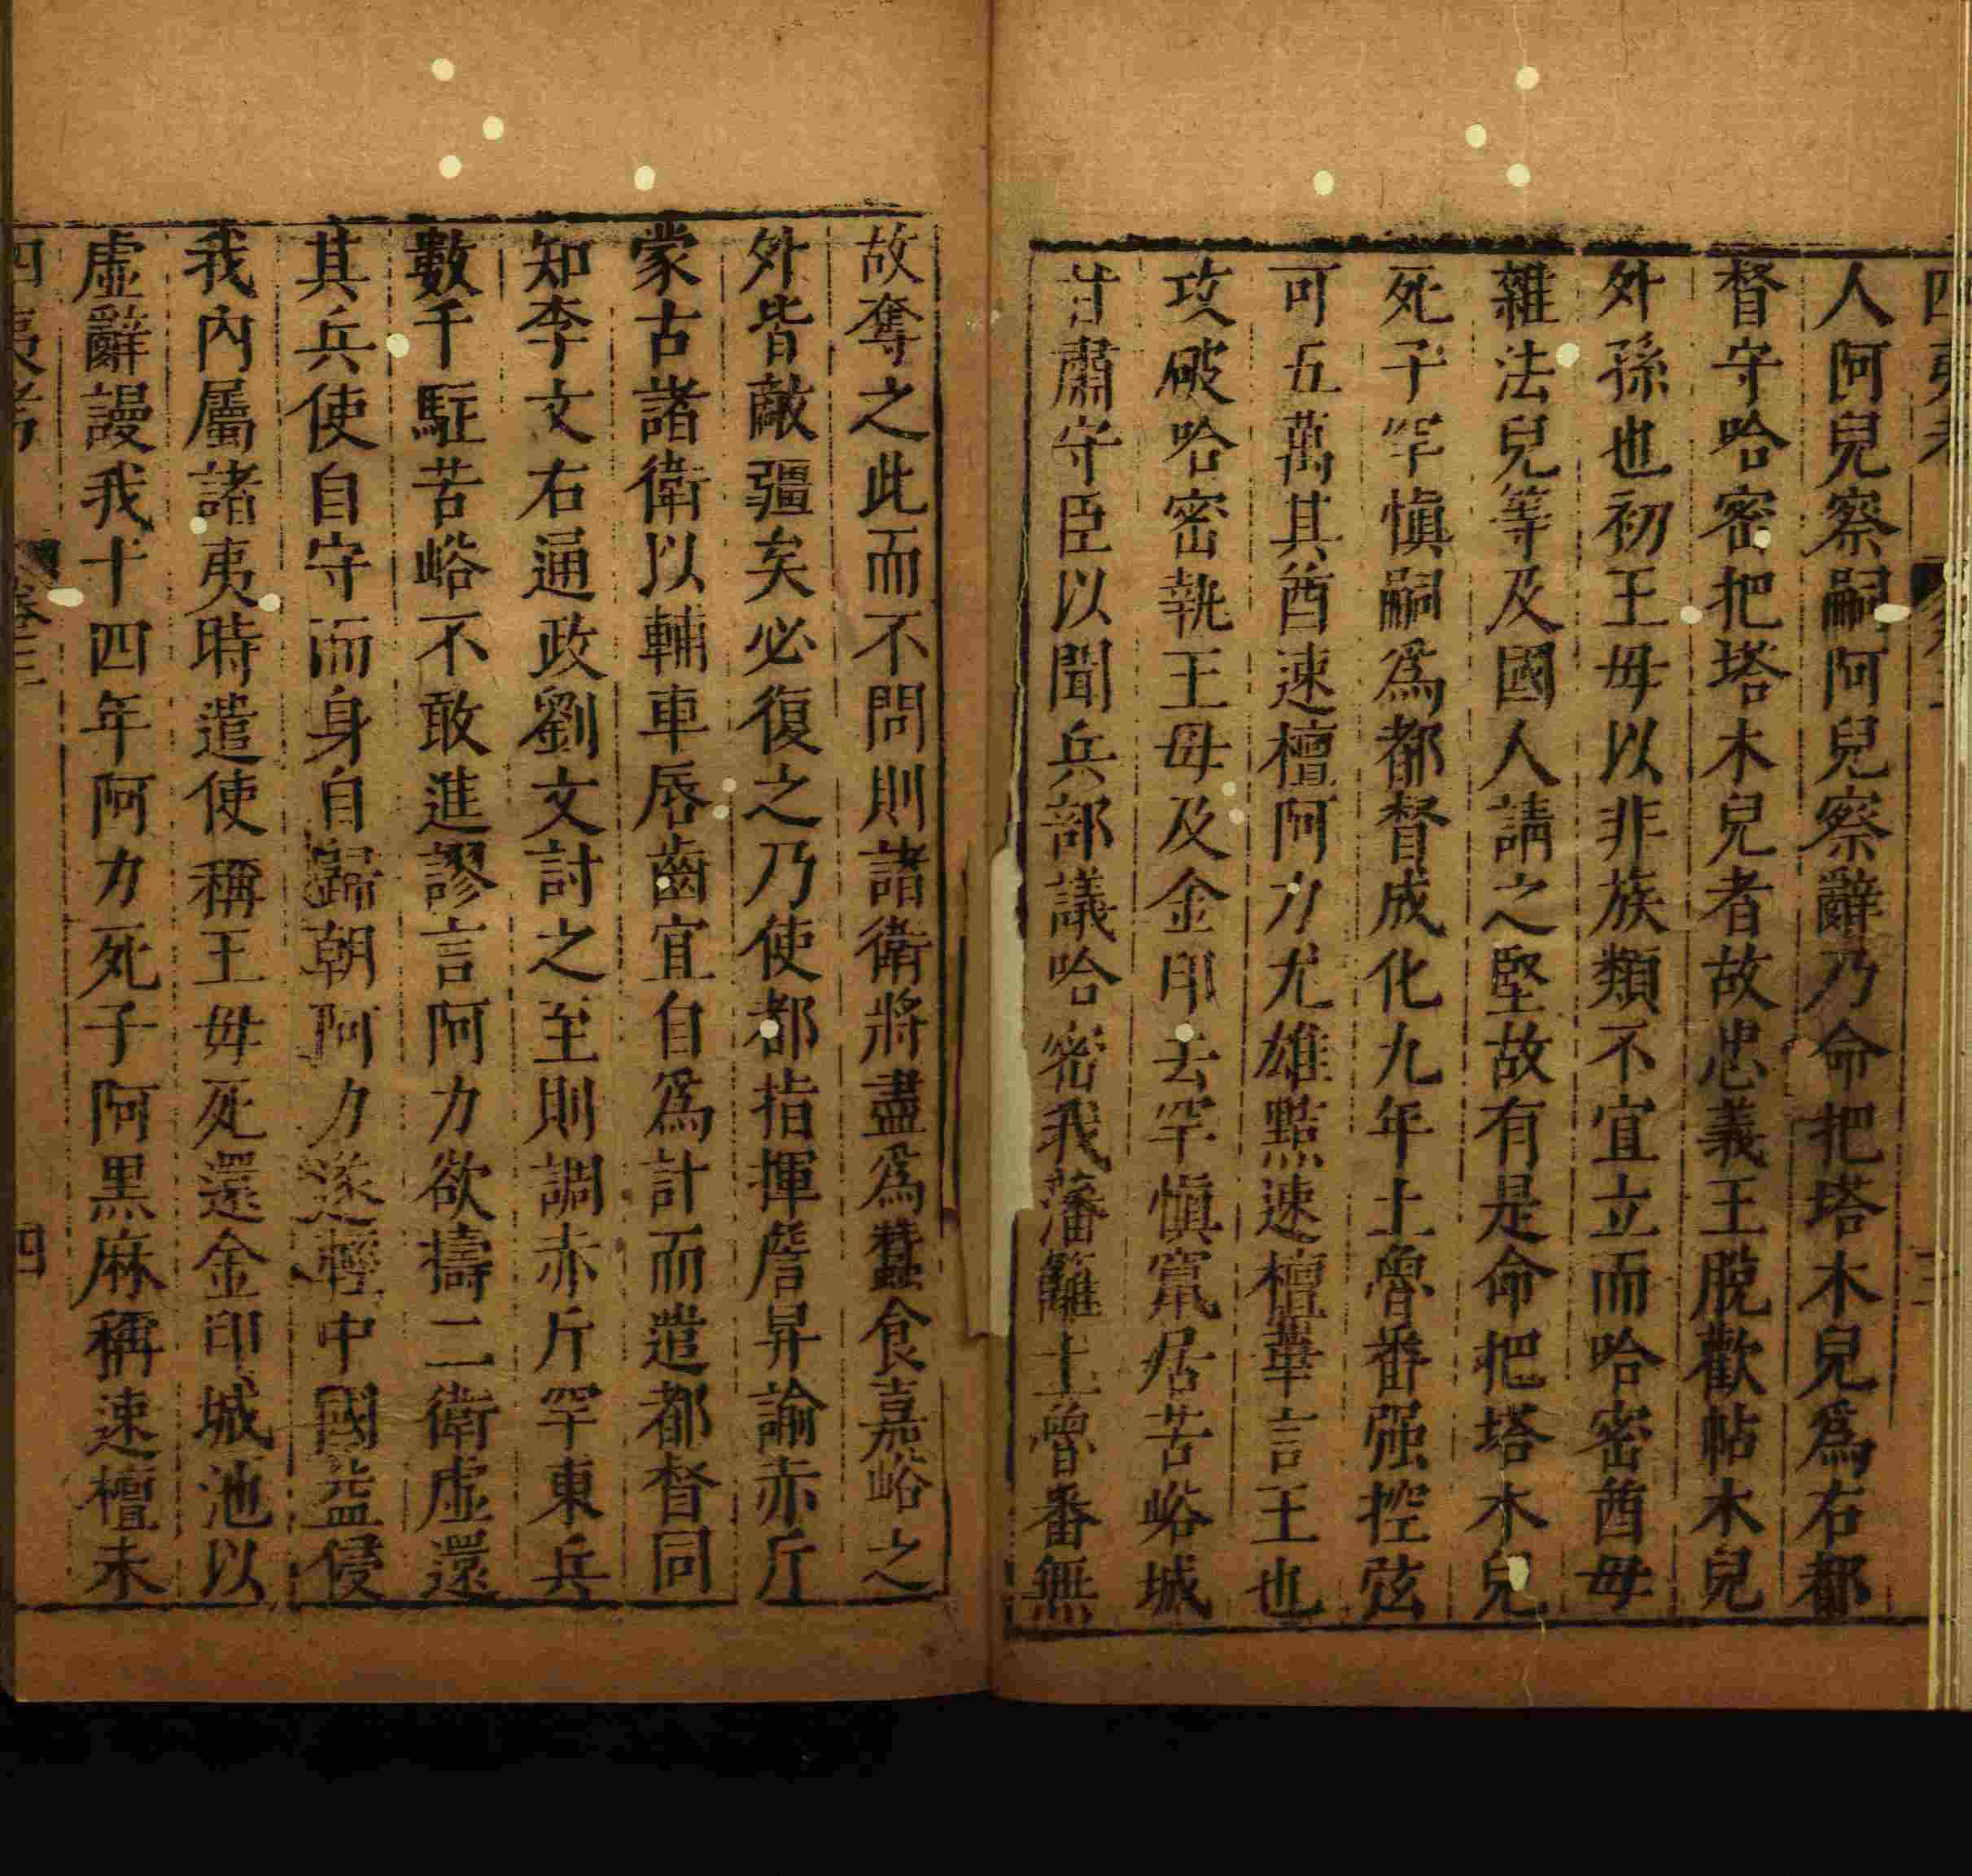 人阿兒察嗣阿兒察辭乃命把塔木兒爲右都
督守哈密把塔木兒者故忠義王脫歡帖木兒
外孫也初王母以非族類不宜立而哈密酋毋
雜法兒等及國人請之堅故有是命把塔木兒
死子罕愼嗣爲都督成化九年土魯番强控弦
可五萬其酋速檀阿力尤雄黠速檀華言王也
攻破哈密執王母及金印去罕愼竄居苦峪城
甘肅守臣以聞兵部議哈密我藩籬土魯番無
故奪之此而不問則諸衛將盡爲蠶食嘉峪之
外皆敵疆矣必復之乃使都指揮詹昇諭赤斤
蒙古諸衛以輔車唇齒宜自爲計而遣都督同
知李文右通政劉文討之至則調赤斤罕東兵
數千駐苦峪不敢進謬言阿力欲擣二衛虛還
其兵使自守而身自歸朝阿力遂輕中國益侵
我內屬諸夷時遣使稱王毋死還金印城池以
虛辭謾我十四年阿力死子阿黑麻稱速檀未
四夷考 卷三 四